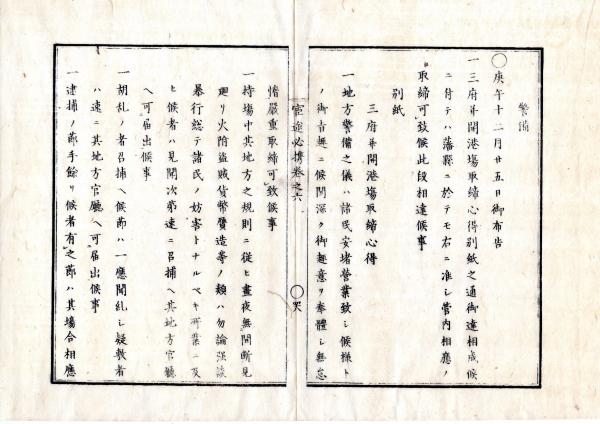 警備
〇庚午十二月廿五日御布告
一三府幷開港塲取締心得別紙之通御達相成候
ニ付テハ藩縣ニ於テモ右ニ准シ管内相應ノ
取締可致候此段相達候事
別紙
三府幷開港塲取締心得
一地方警備之儀ハ諸民安堵營業致シ候樣ト
ノ御旨趣ニ候間深ク御趣意ヲ奉體シ無怠
官途必携卷之六
〇
惰嚴重取締可致候事
一持塲中其地方之規則ニ從ヒ晝夜無間斷見
廻リ火附盜賊貨幣贋造等ノ類ハ勿論强談
暴行總テ諸民ノ妨害トナルベキ所業ニ及
ヒ候者ハ見聞次第速ニ召捕ヘ其地方官廳
ヘ可届出候事
一胡乱ノ者召捕ヘ候節ハ一應聞糺シ疑敷者
ハ速ニ其地方官廳ヘ可届出候事
一逮捕ノ節手餘リ候者有之節ハ其塲合相應